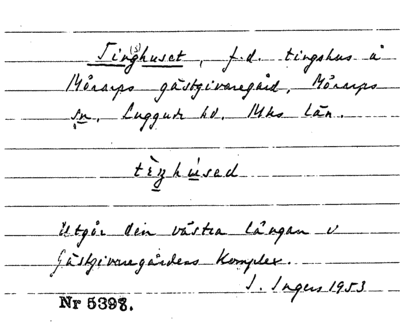 Ting(s)huset, f.d. tingshus å
Mörarps gästgivaregård, Mörarps
sn, Luggude hd, Mhs län.
tèŋhúsəd
Utgör den västra längan v
Gästgivaregårdens komplex.
I. Ingers 1953
Nr 5398.